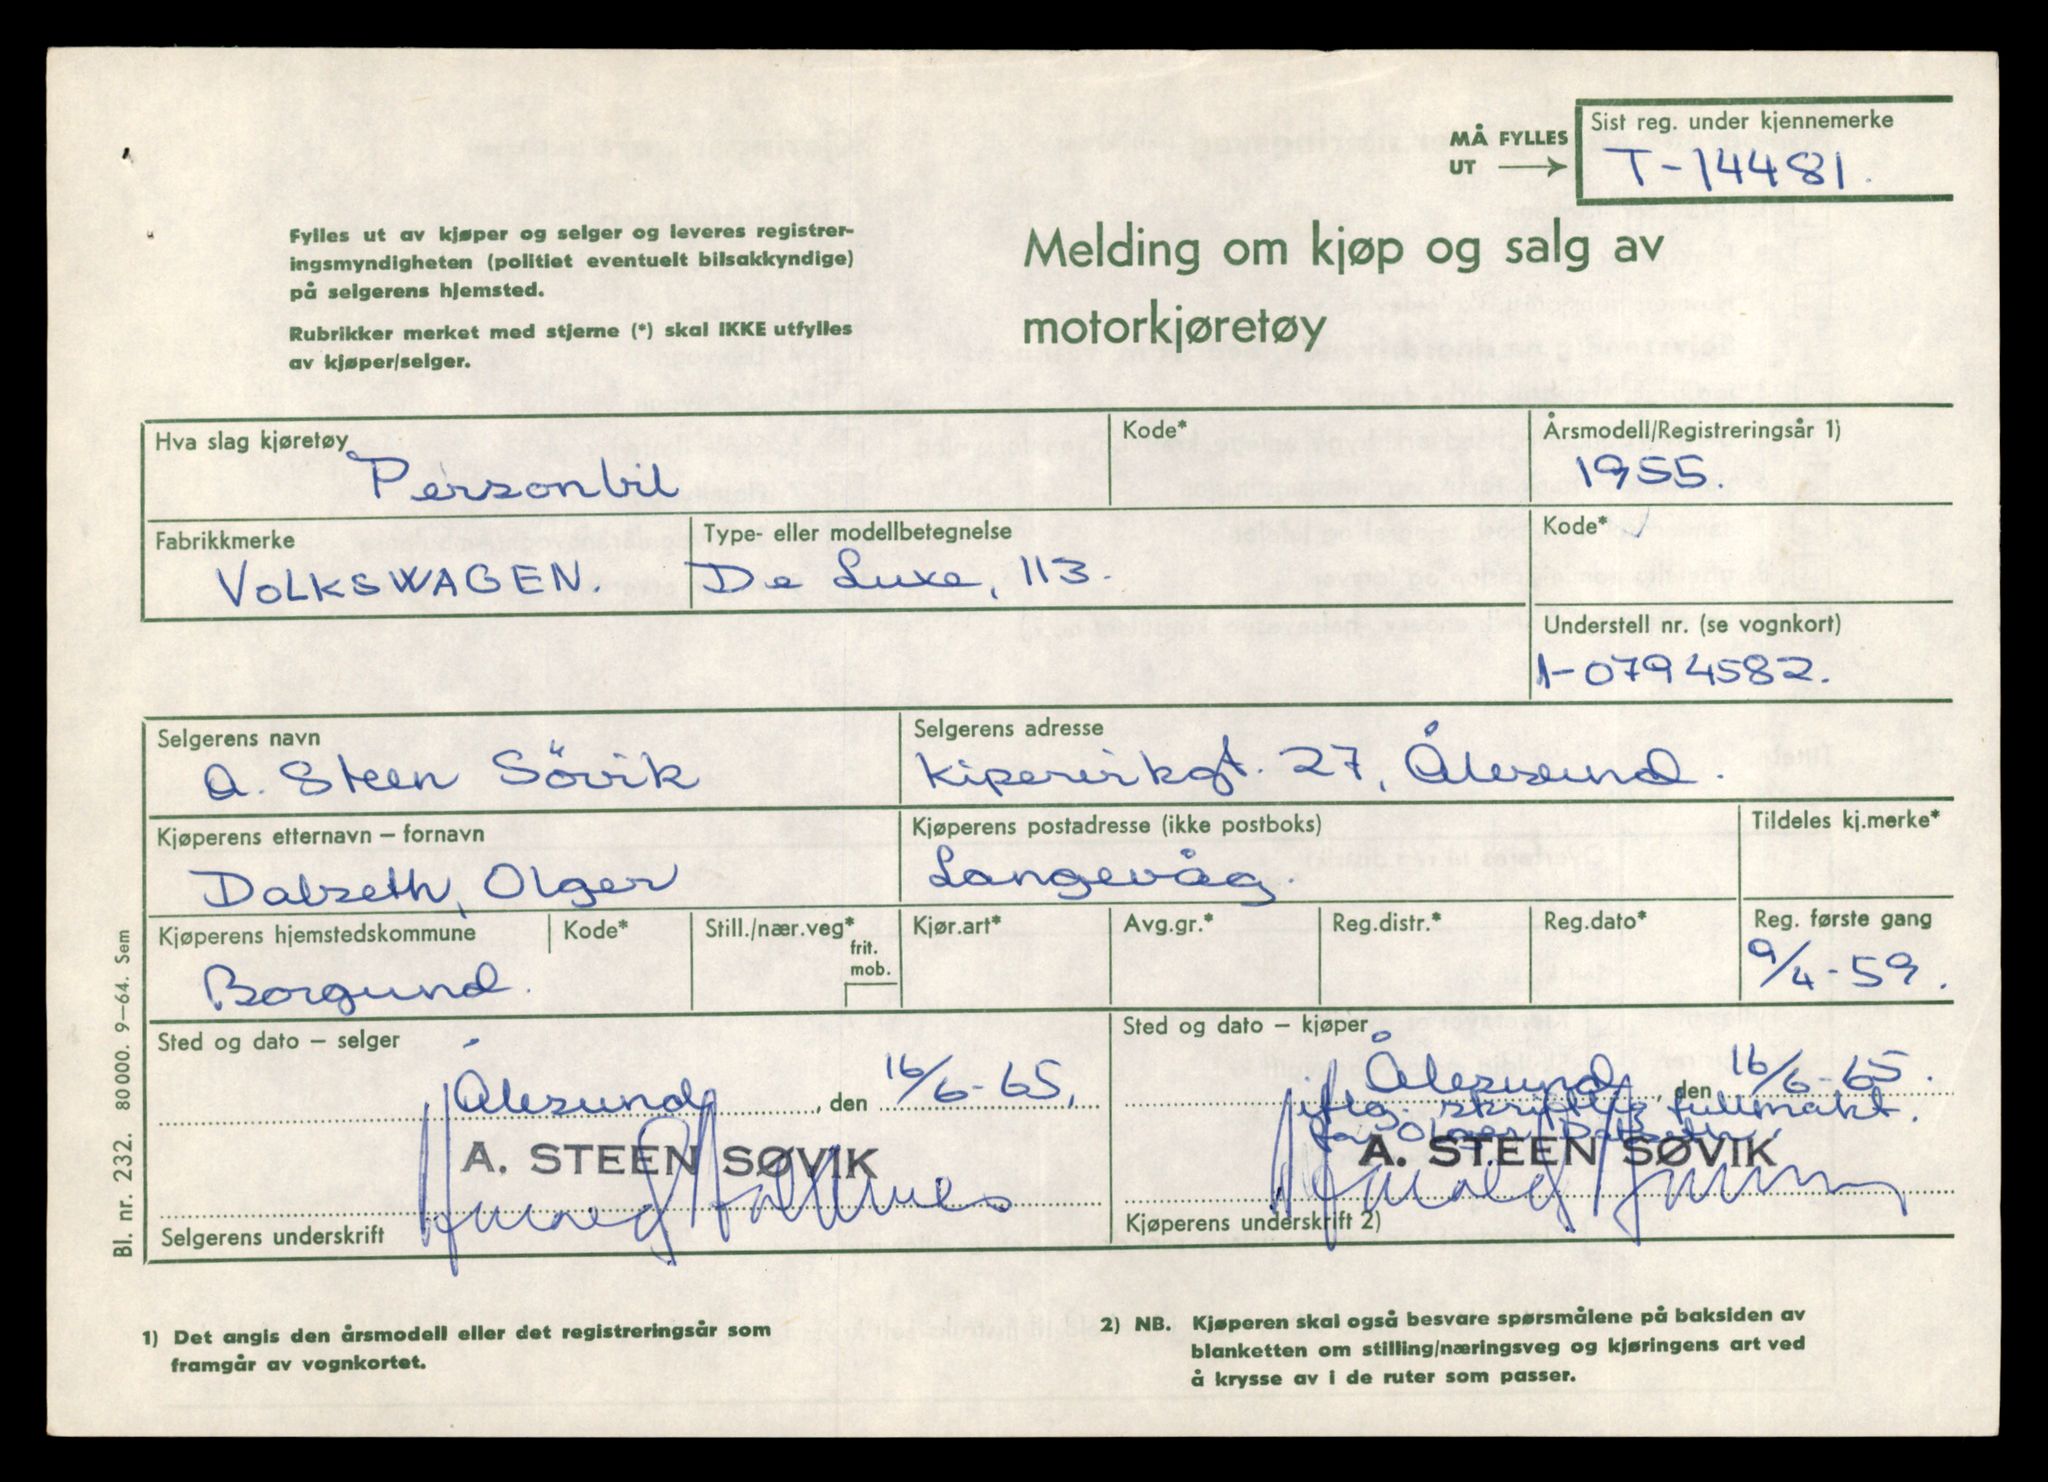 MÅ FYLLES
UT
Sist reg. under kjennemerke
T-14481.
Fylles ut av kjøper og selger og leveres registrer-
ingsmyndigheten (politiet eventuelt bilsakkyndige)
på selgerens hjemsted.
Rubrikker merket med stjerne (*) skal IKKE utfylles
av kjøper/selger.
Melding om kjøp og salg av
motorkjøretøy
Hva slag kjøretøy
Personbil
Kode*
Årsmodell/Registreringsår 1)
1955.
Fabrikkmerke
VOLKSWAGEN.
Type- eller modellbetegnelse
De Luxe, 113.
Kode*
Understell nr. (se vognkort)
1-0794582.
Selgerens navn
A. Steen Sövik
Selgerens adresse
Kipervikgt. 27, Ålesund.
Kjøperens etternavn – fornavn
Dalseth, Olger
Kjøperens postadresse (ikke postboks)
Langevåg.
Tildeles kj.merke*
Kjøperens hjemstedskommune
Borgund.
Kode*
Still./nær.veg*
frit.
mob.
Kjør.art*
Avg.gr.*
Reg.distr.*
Reg.dato*
Reg. første gang
9/4-59.
Sted og dato – selger
Ålesund, den 16/6-65,
A. STEEN SØVIK
Selgerens underskrift
Sted og dato – kjøper
Ålesund, den 16/6-65.
iflg. skriftlig fullmakt.
for Olger Dalseth.
A. STEEN SØVIK
Kjøperens underskrift 2)
1) Det angis den årsmodell eller det registreringsår som
framgår av vognkortet.
2) NB. Kjøperen skal også besvare spørsmålene på baksiden av
blanketten om stilling/næringsveg og kjøringens art ved
å krysse av i de ruter som passer.
Bl. nr. 232. 80 000. 9–64. Sem